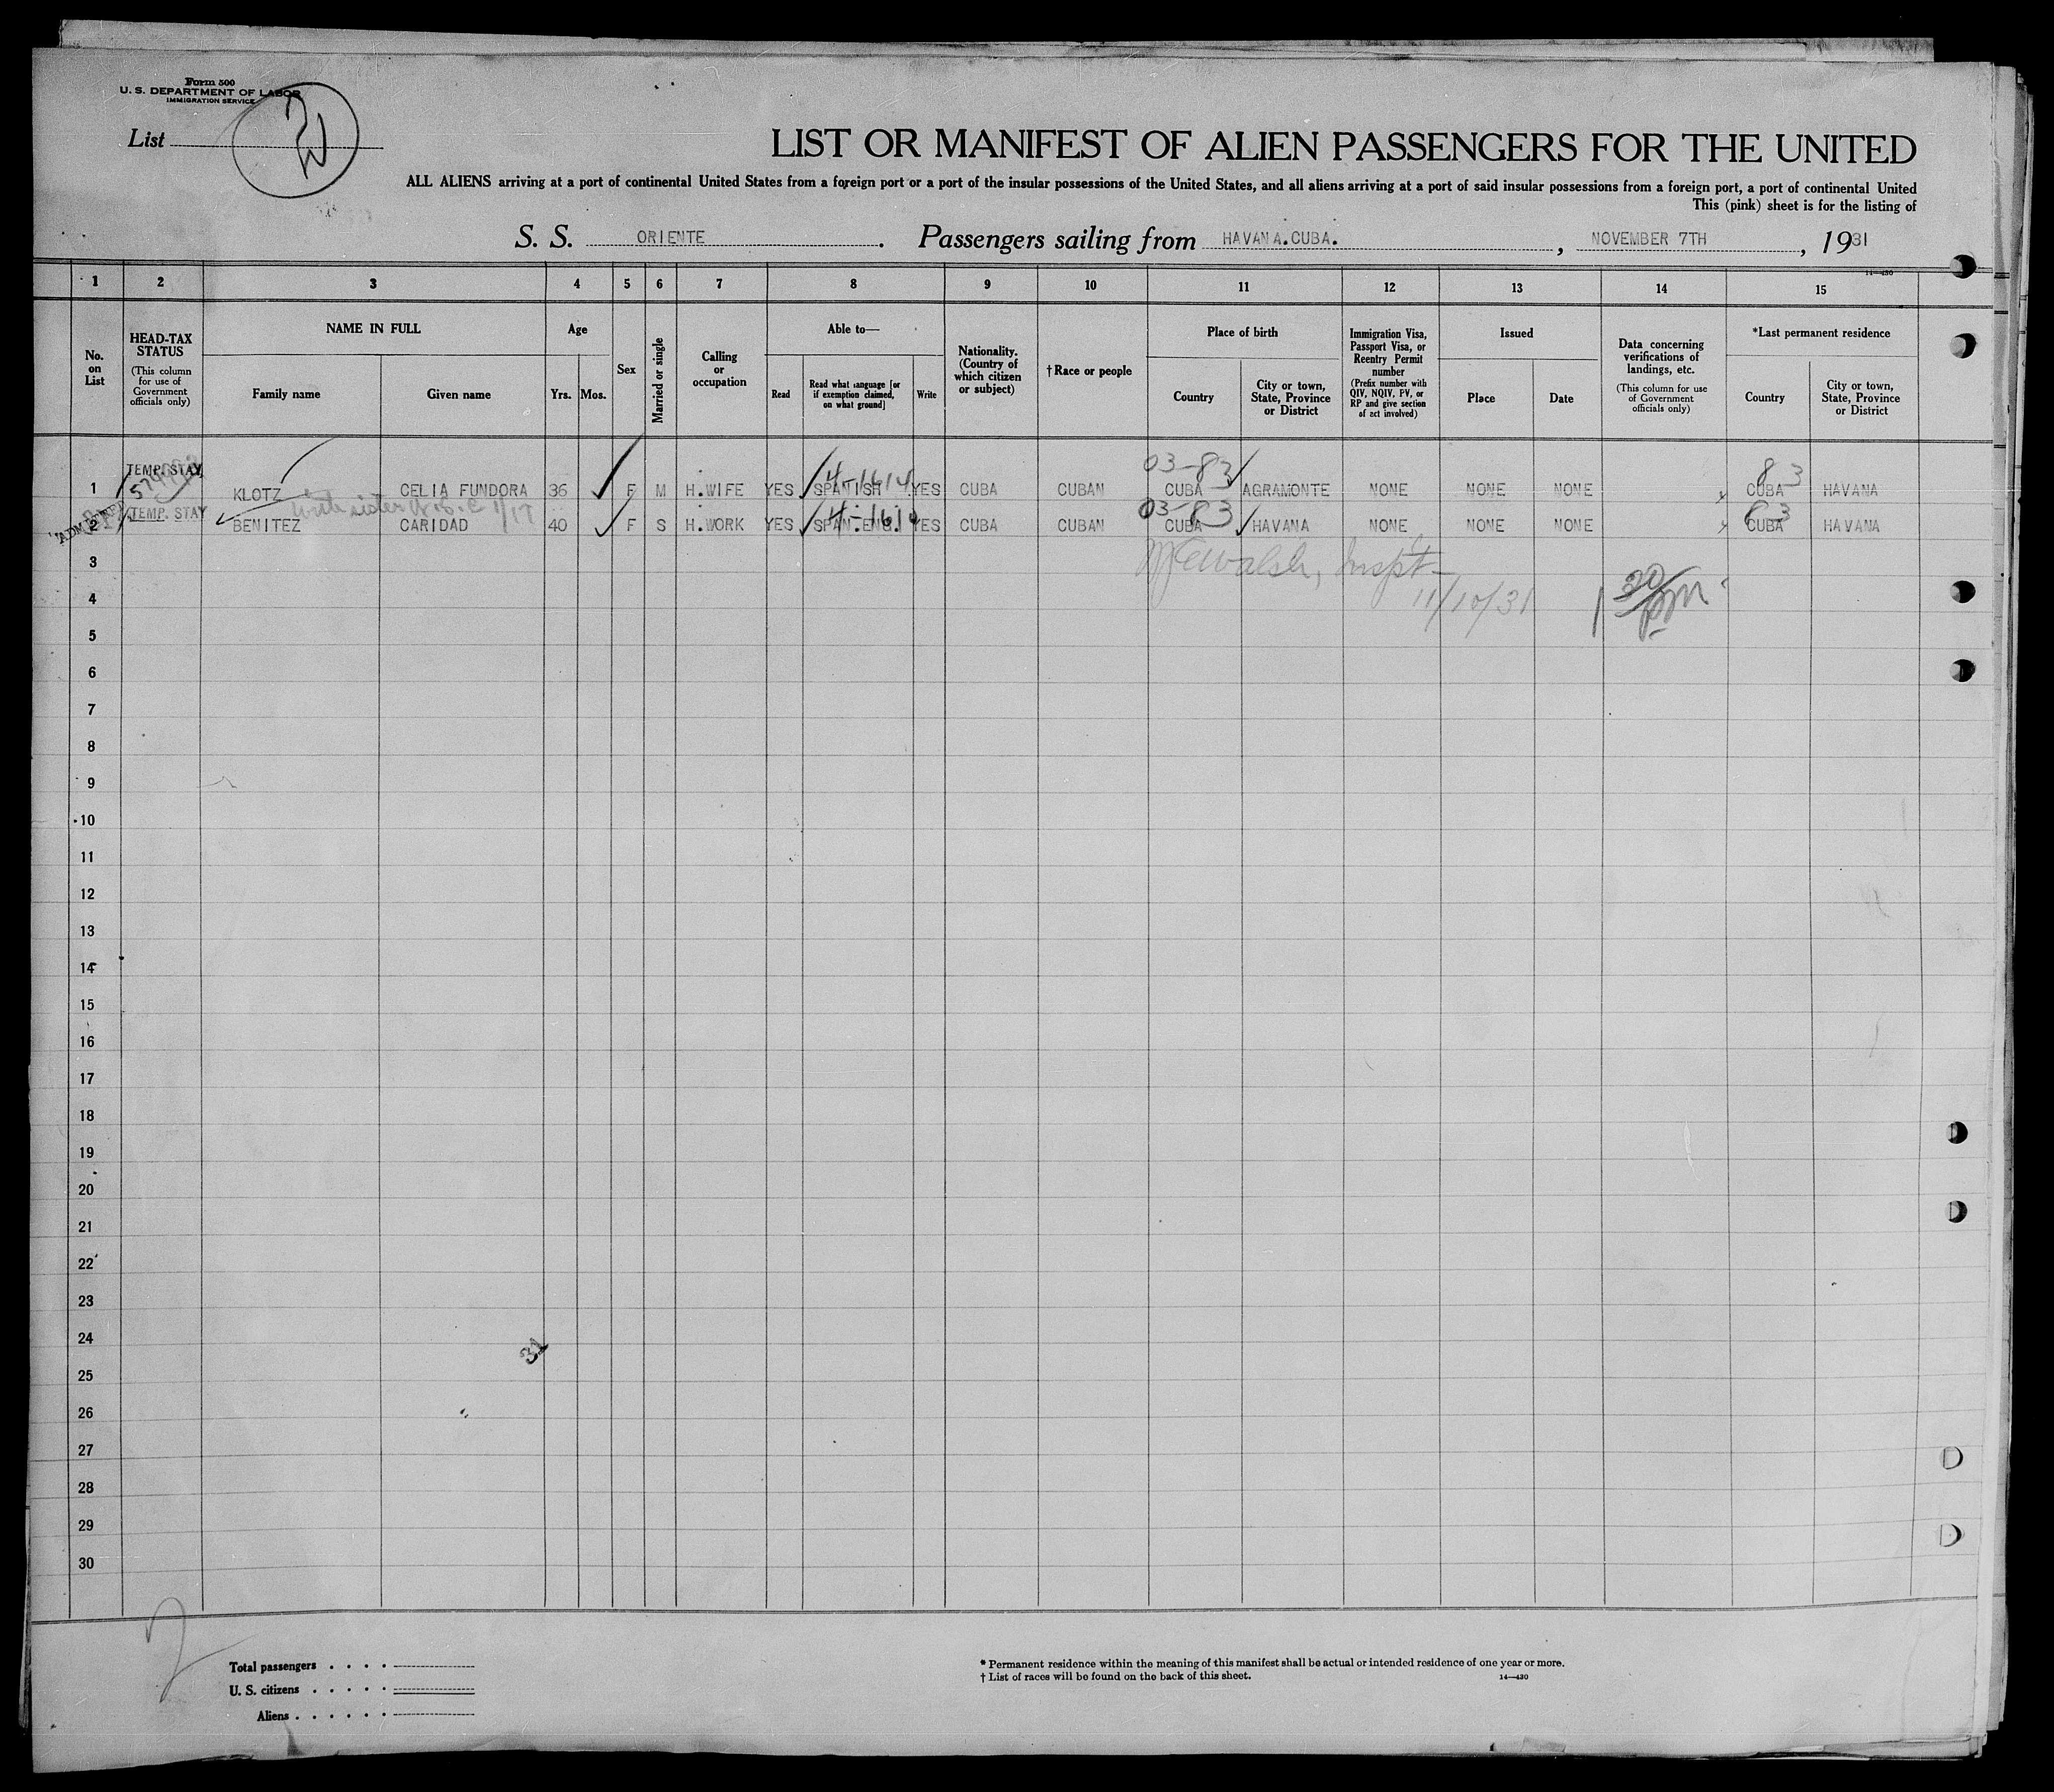 Form 500
U. S. DEPARTMENT OF LABOR
IMMIGRATION SERVICE
List
LIST OR MANIFEST OF ALIEN PASSENGERS FOR THE UNITED
ALL ALIENS arriving at a port of continental United States from a foreign port or a port of the insular possessions of the United States, and all aliens arriving at a port of said insular possessions from a foreign port, a port of continental United
This (pink) sheet is for the listing of
S. S. ORIENTE. Passengers sailing from HAVANA.CUBA. , NOVEMBER 7TH , 1931
14—430
1 2 3 4 5 6 7 8 9 10 11 12 13 14 15
No. on List
HEAD-TAX STATUS
(This column for use of Government officials only)
NAME IN FULL
Family name Given name
Age
Yrs. Mos.
Sex
Married or single
Calling or occupation
Able to—
Read
Read what language [or if exemption claimed, on what ground]
Write
Nationality. (Country of which citizen or subject)
† Race or people
Place of birth
Country
City or town, State, Province or District
Immigration Visa, Passport Visa, or Reentry Permit number
(Prefix number with QIV, NQIV, PV, or RP and give section of act involved)
Issued
Place Date
Data concerning verifications of landings, etc.
(This column for use of Government officials only)
*Last permanent residence
Country
City or town, State, Province or District
TEMP. STAY 4-1614 03-83 83
1 KLOTZ CELIA FUNDORA 36 F M H.WIFE YES SPANISH YES CUBA CUBAN CUBA AGRAMONTE NONE NONE NONE CUBA HAVANA
with sister
TEMP. STAY 03-83 83
2 BENITEZ CARIDAD 40 F S H.WORK YES SPAN.ENG. YES CUBA CUBAN CUBA HAVANA NONE NONE NONE CUBA HAVANA
3 Walsh, Inspt-
4 11/10/31 1 30/pm
5
6
7
8
9
10
11
12
13
14
15
16
17
18
19
20
21
22
23
24
25
26
27
28
29
30
2
Total passengers . . . .
U. S. citizens . . . . .
Aliens . . . . . .
* Permanent residence within the meaning of this manifest shall be actual or intended residence of one year or more.
† List of races will be found on the back of this sheet.
14—430